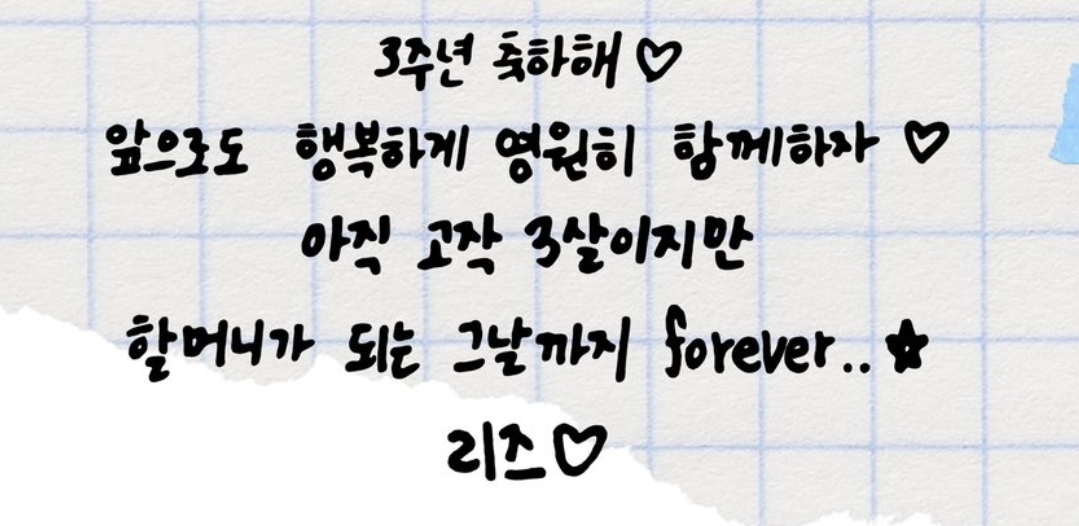 3주년 축하해 ♡
앞으로도 행복하게 영원히 함께하자 ♡
아직 고작 3살이지만
할머니가 되는 그날까지 forever..☆
리즈♡